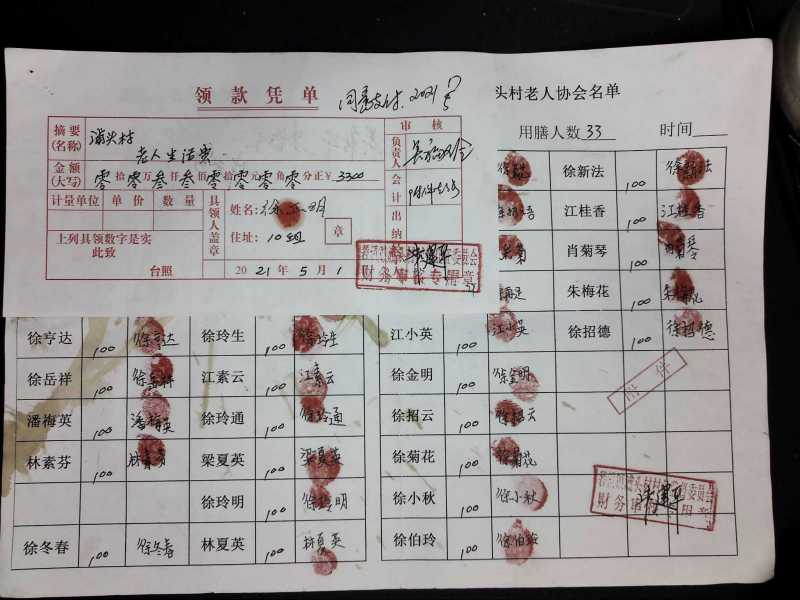 领款凭单
同意支付. 2021
摘要
(名称)
老人生活费
审核
负责人
会计
出纳
金额
(大写) 零拾零万叁仟叁佰零拾零元零角零分正￥3300
计量单位 单价 数量
具领人盖章
姓名:
住址: 10组
章
上列具领数字是实
此致
台照
2021年5月1
财务审核专用章
头村老人协会名单
用膳人数33 时间
徐新法 100 徐新法
江桂香 100 江桂香
肖菊琴 100 肖菊琴
朱梅花 100 朱梅花
徐亨达 100 徐亨达 徐玲生 100 徐玲生 江小英 100 江小英 徐招德 100 徐招德
徐岳祥 100 徐岳祥 江素云 100 江素云 徐金明 100 徐金明
附件
潘梅英 100 潘梅英 徐玲通 100 徐玲通 徐招云 100 徐招云
林素芬 100 林素芬 梁夏英 100 梁夏英 徐菊花 100 徐菊花
徐玲明 100 徐玲明 徐小秋 100 徐小秋
财务审 用章
徐冬春 100 徐冬春 林夏英 100 林夏英 徐伯玲 100 徐伯玲